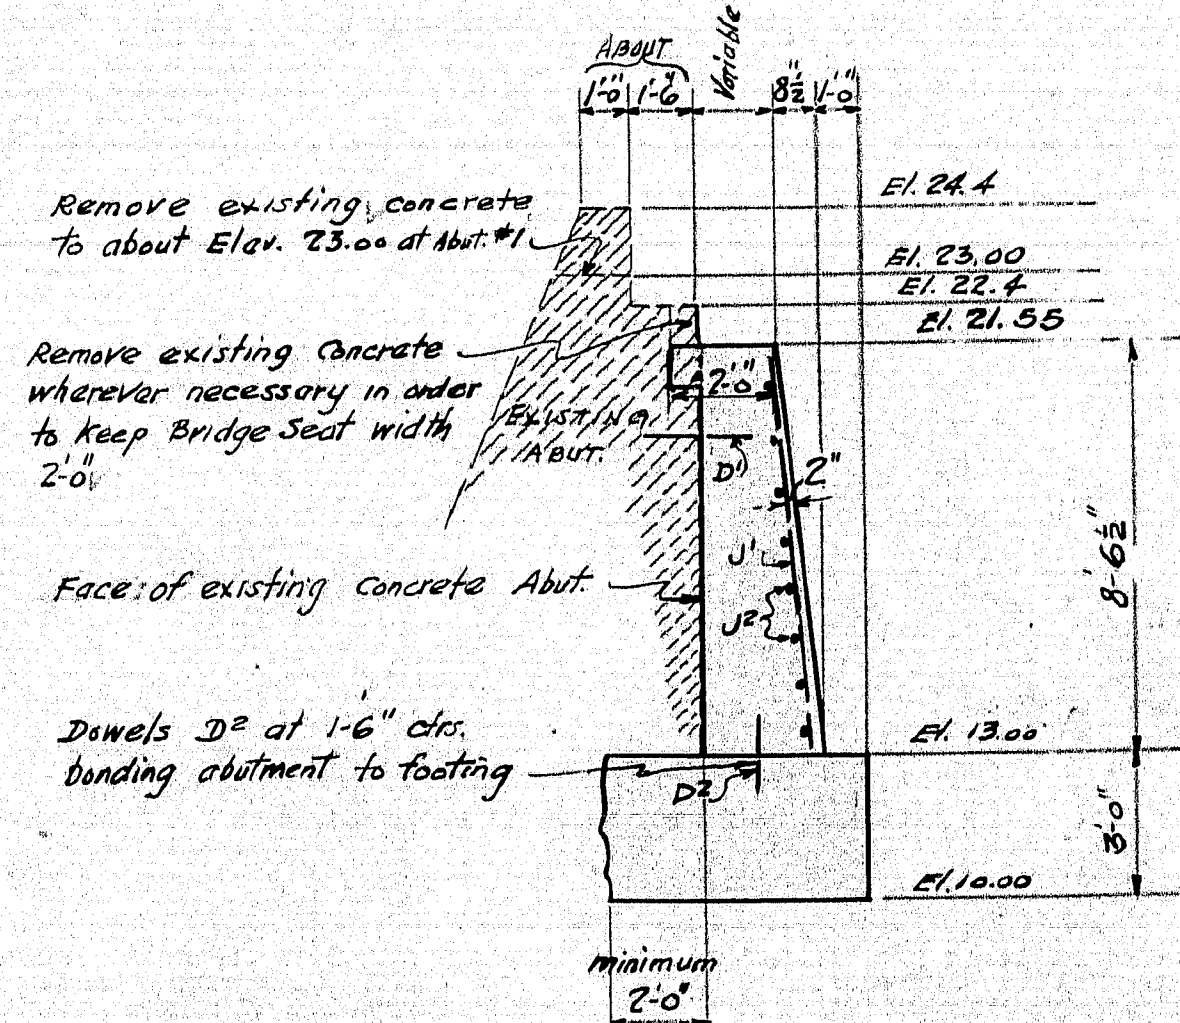 ABOUT
Variable
1'-0" 1'-6" 8½" 1'-0"
El. 24.4
Remove existing concrete
to about Elav. 23.00 at Abut. #1
El. 23.00
El. 22.4
El. 21.55
Remove existing Concrete
wherever necessary in order
to keep Bridge Seat width
2'-0"
2'-0"
EXISTING
ABUT.
D¹
2"
J¹
J²
8'-6½"
Face of existing Concrete Abut.
Dowels D² at 1'-6" ctrs.
bonding abutment to footing
El. 13.00
D²
3'-0"
El. 10.00
minimum
2'-0"